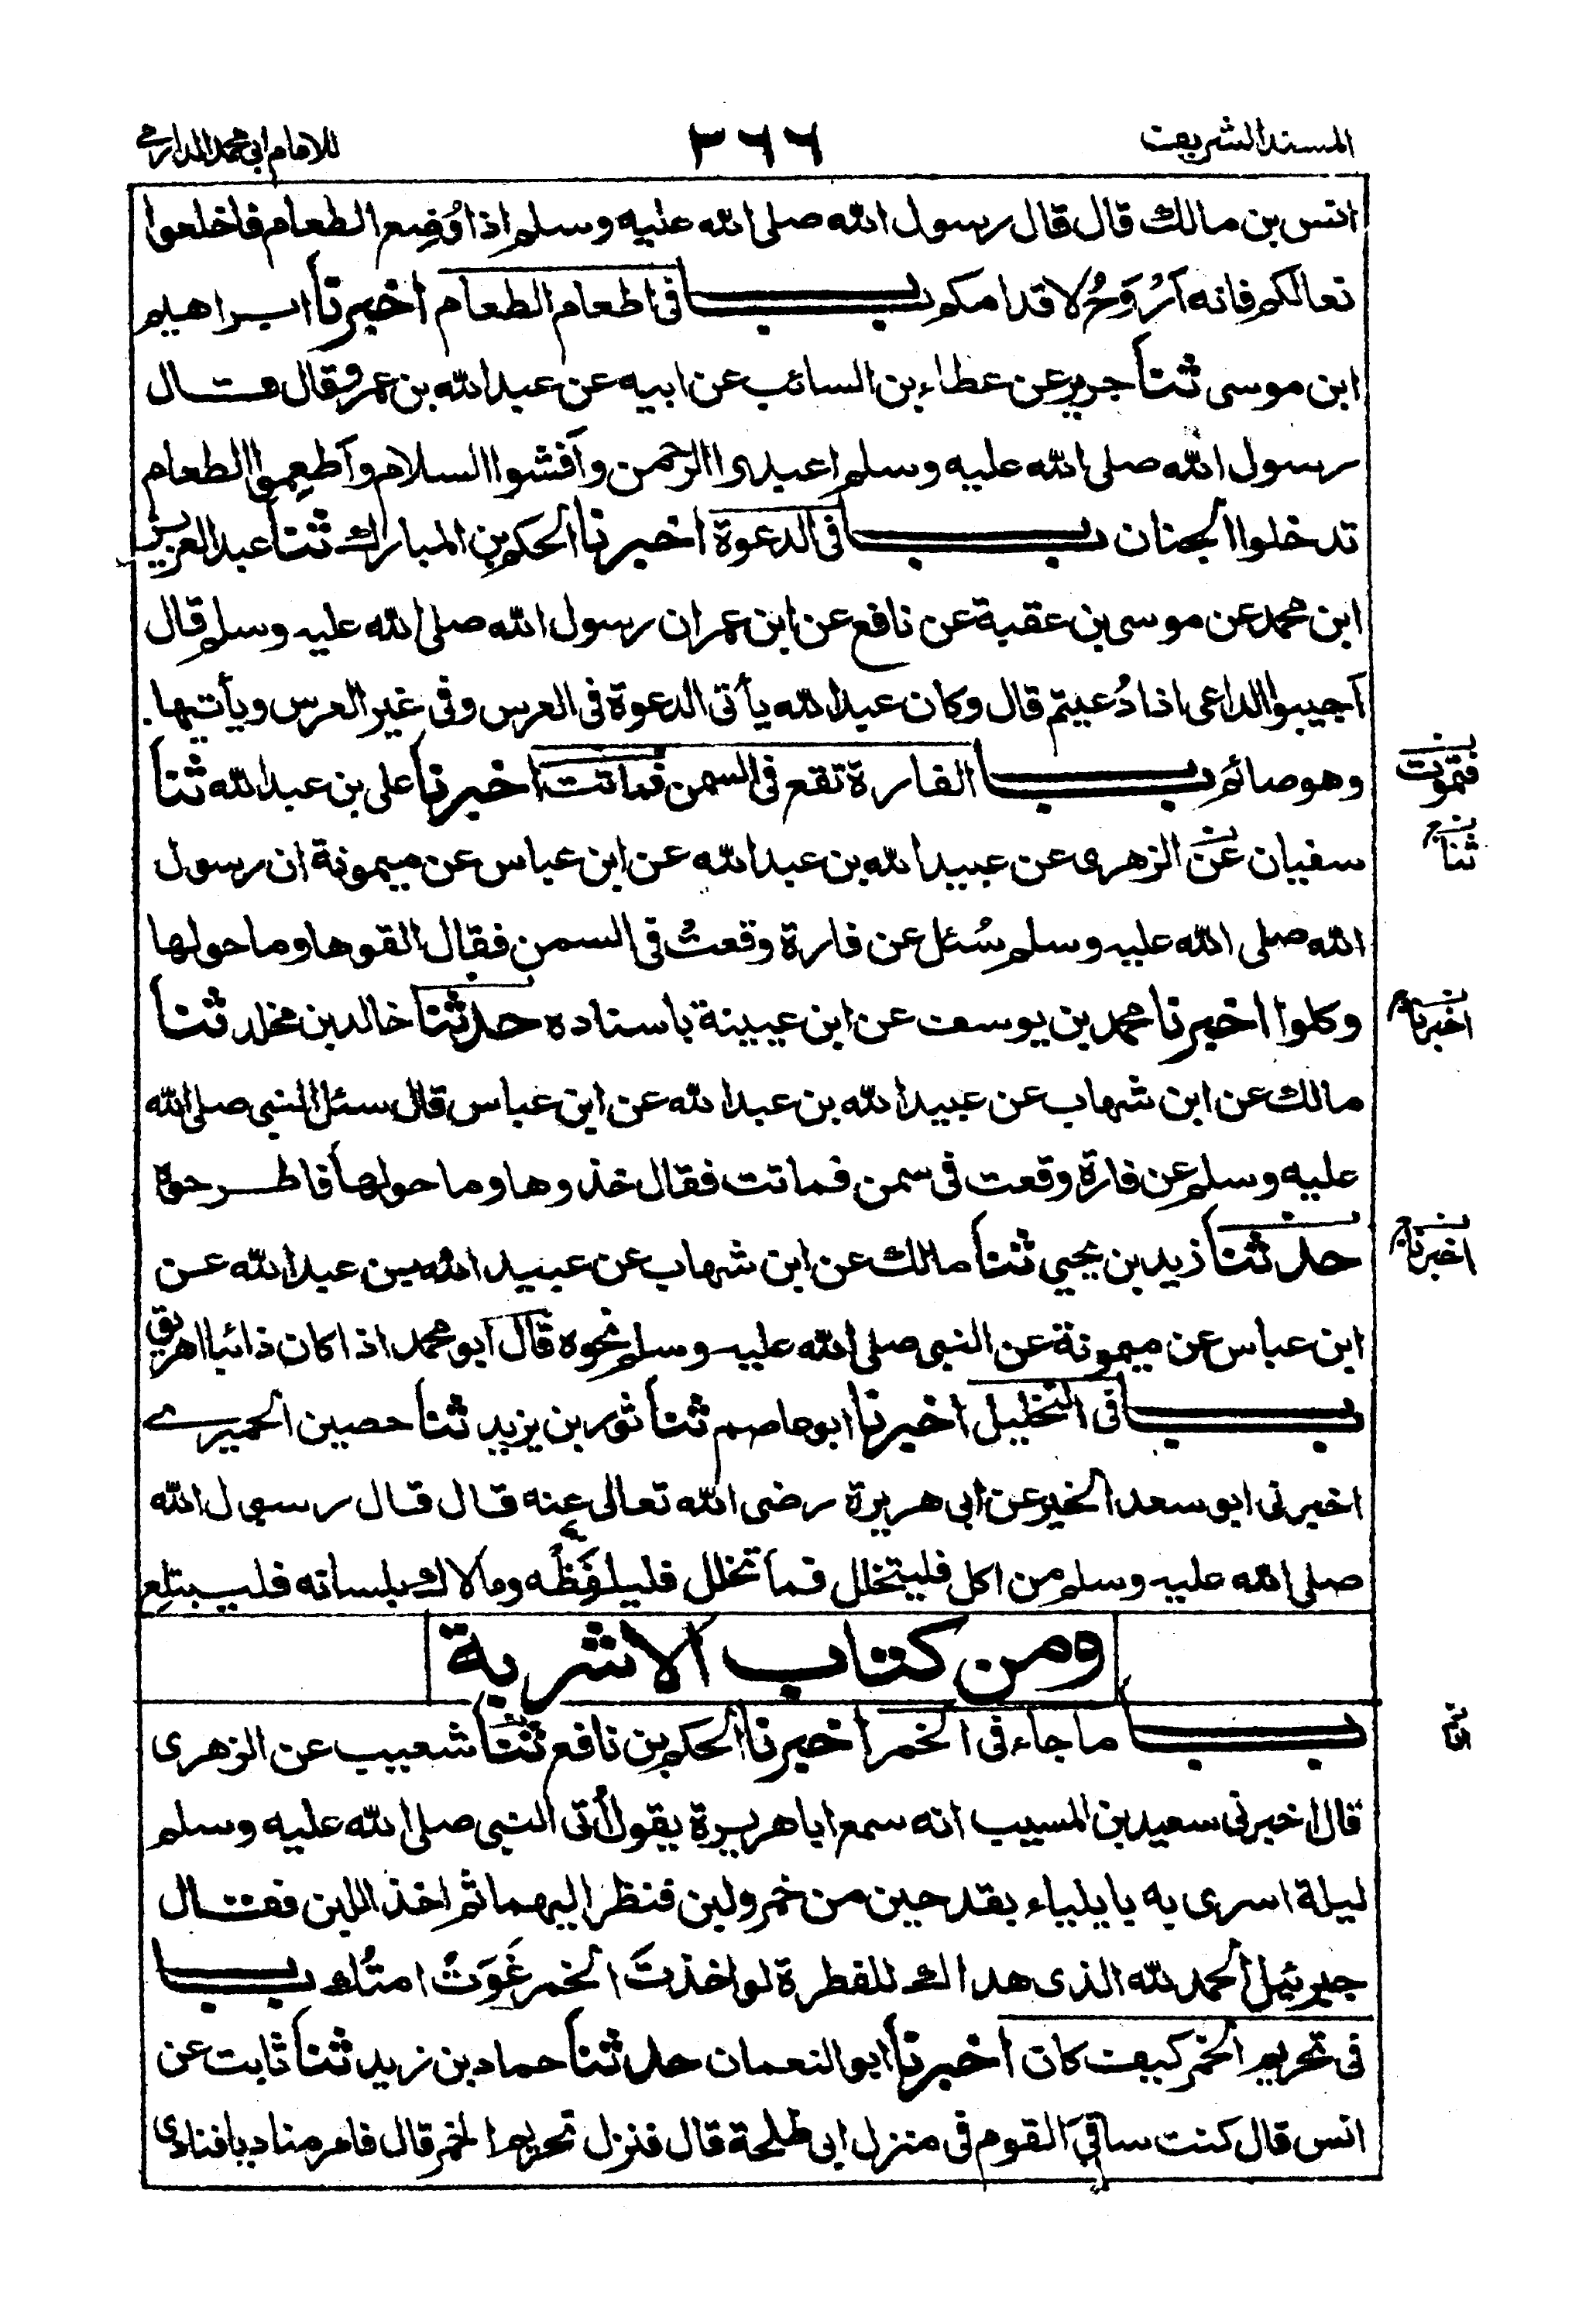 المسند الشريف
٣٦٦
للامام ابى محمد الدارمى
انس بن مالك قال قال رسول الله صلى الله عليه وسلم اذا وُضِع الطعام فاخلعوا
نعالكم فانه اَرْوَحُ لاقدامكم باب فى اطعام الطعام اخبرنا ابراهيم
ابن موسى ثنا جرير عن عطاء بن السائب عن ابيه عن عبد الله بن عمرو قال قال
رسول الله صلى الله عليه وسلم اعبدوا الرحمن واَفشوا السلام واَطعِموا الطعام
تدخلوا الجنان باب فى الدعوة اخبرنا الحكم بن المبارك ثنا عبد العزيز
ابن محمد عن موسى بن عقبة عن نافع عن ابن عمر ان رسول الله صلى الله عليه وسلم قال
اَجيبوا الداعى اذا دُعيتم قال وكان عبد الله يأتى الدعوة فى العرس وفى غير العرس ويأتيها
وهو صائم باب الفارة تقع فى السمن فماتت اخبرنا على بن عبد الله ثنا
فتموت
سفيان عن الزهرى عن عبيد الله بن عبد الله عن ابن عباس عن ميمونة ان رسول
ثنا
الله صلى الله عليه وسلم سُئل عن فارة وقعتْ فى السمن فقال القوها وما حولها
وكلوا اخبرنا محمد بن يوسف عن ابن عيينة باسناده حدثنا خالد بن مخلد ثنا
اخبرنا
مالك عن ابن شهاب عن عبيد الله بن عبد الله عن ابن عباس قال سئل النبى صلى الله
عليه وسلم عن فارة وقعت فى سمن فماتت فقال خذوها وما حولها فاطرحوه
حدثنا زيد بن يحيى ثنا مالك عن ابن شهاب عن عبيد الله بن عبد الله عن
اخبرنا
ابن عباس عن ميمونة عن النبى صلى الله عليه وسلم نحوه قال ابو محمد اذا كان ذائبا اهريق
باب فى التخليل اخبرنا ابو عاصم ثنا ثور بن يزيد ثنا حصين الحميرى
اخبرنى ابو سعد الخير عن ابى هريرة رضى الله تعالى عنه قال قال رسول الله
صلى الله عليه وسلم من اكل فليتخلل فما تخلل فليلفِظْه وما لاك بلسانه فليبتلع
ومن كتاب الاشربة
باب ما جاء فى الخمر اخبرنا الحكم بن نافع ثنا شعيب عن الزهرى
قال اخبرنى سعيد بن المسيب انه سمع ابا هريرة يقول اُتى النبى صلى الله عليه وسلم
ليلة اسرى به بايلياء بقدحين من خمر ولبن فنظر اليهما ثم اخذ اللبن فقال
جبرئيل الحمد لله الذى هداك للفطرة لو اخذتَ الخمر غَوَتْ امتُك باب
فى تحريم الخمر كيف كان اخبرنا ابو النعمان حدثنا حماد بن زيد ثنا ثابت عن
انس قال كنت ساقِىَ القوم فى منزل ابى طلحة قال فنزل تحريم الخمر قال فامر مناديا فنادى